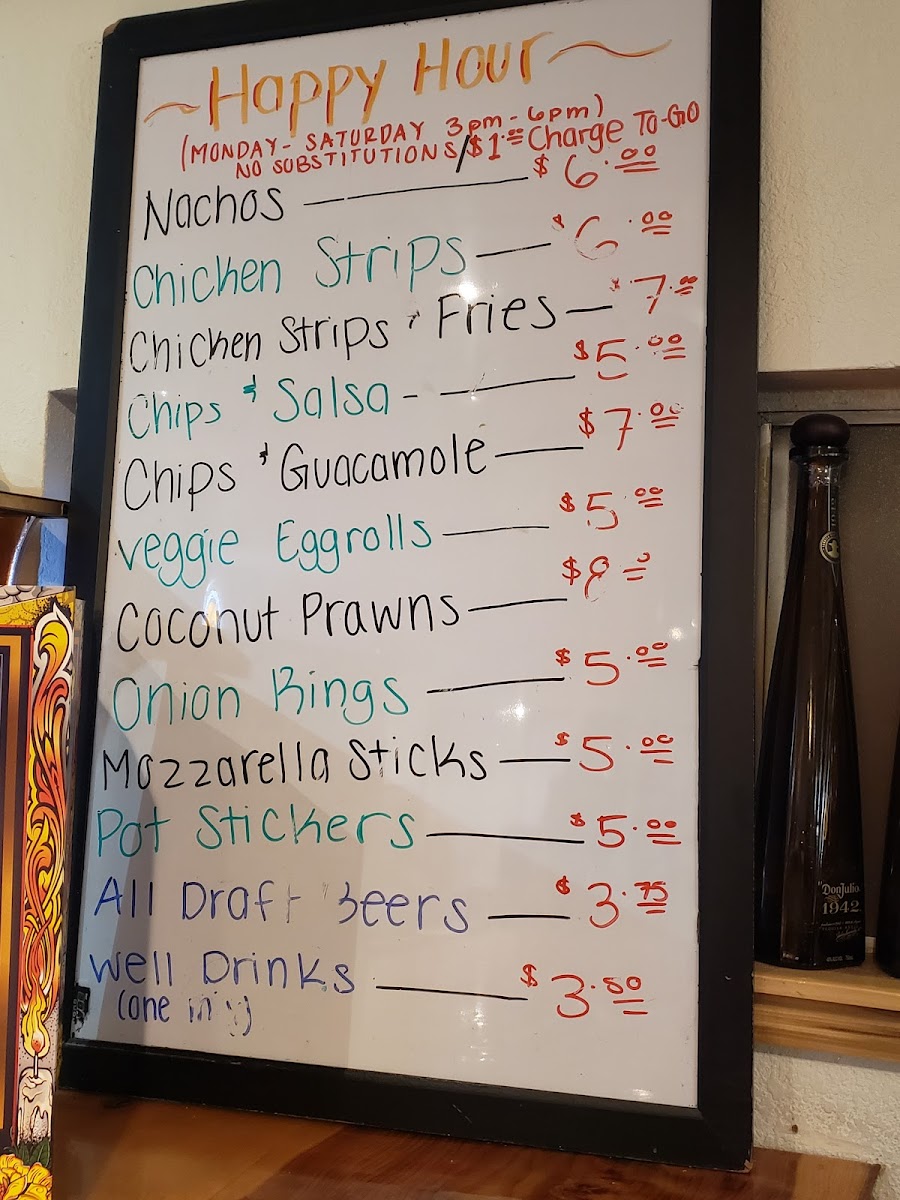 ~Happy Hour~
(MONDAY - SATURDAY 3pm - 6pm)
NO SUBSTITUTIONS/$1.00 Charge TO-GO
Nachos — $6.00
Chicken Strips — $6.00
Chicken Strips & Fries — $7.00
Chips & Salsa - — $5.00
Chips & Guacamole — $7.00
Veggie Eggrolls — $5.00
Coconut Prawns — $8
Onion Rings — $5.00
Mozzarella Sticks — $5.00
Pot Stickers — $5.00
All Draft Beers — $3.75
Well Drinks — $3.50
(one
"Don Julio
1942